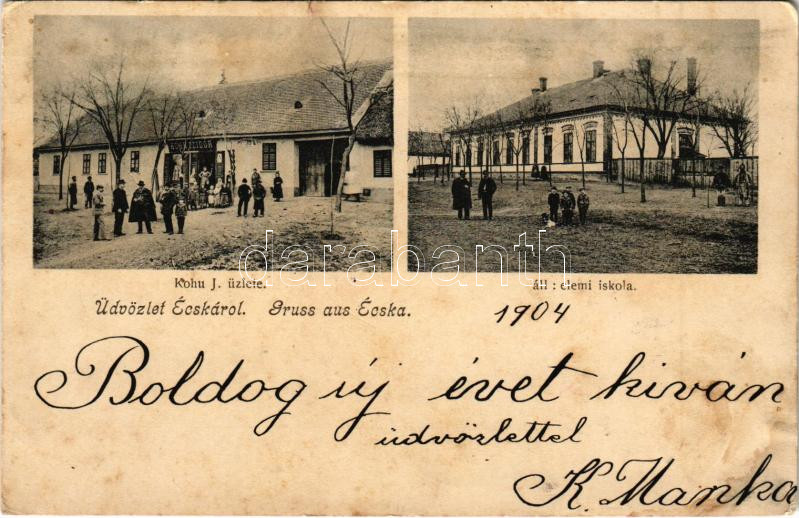 Kohu J. üzlete.
áll : elemi iskola.
Üdvözlet Écskárol. Gruss aus Écska.
1904
Boldog új évet kiván
üdvözlettel
K. Manka
darabanth